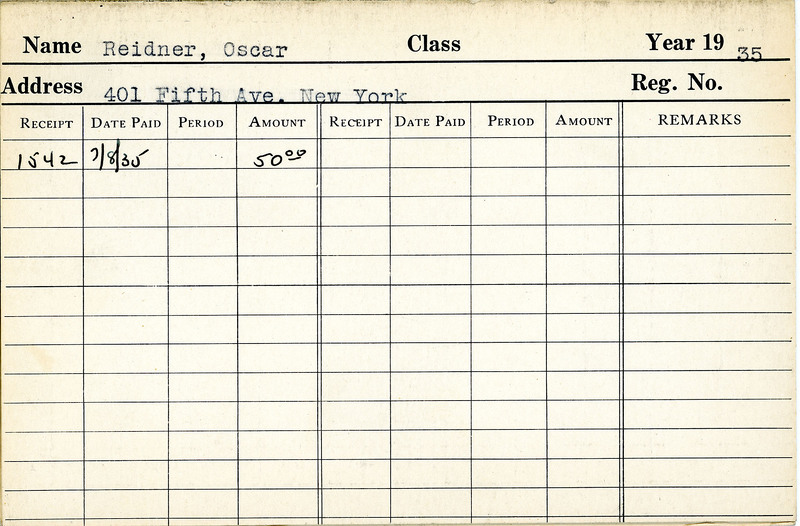 Name Reidner, Oscar Class Year 19 35
Address 401 Fifth Ave. New York Reg. No.
RECEIPT DATE PAID PERIOD AMOUNT RECEIPT DATE PAID PERIOD AMOUNT REMARKS
1542 7/8/35 50.00